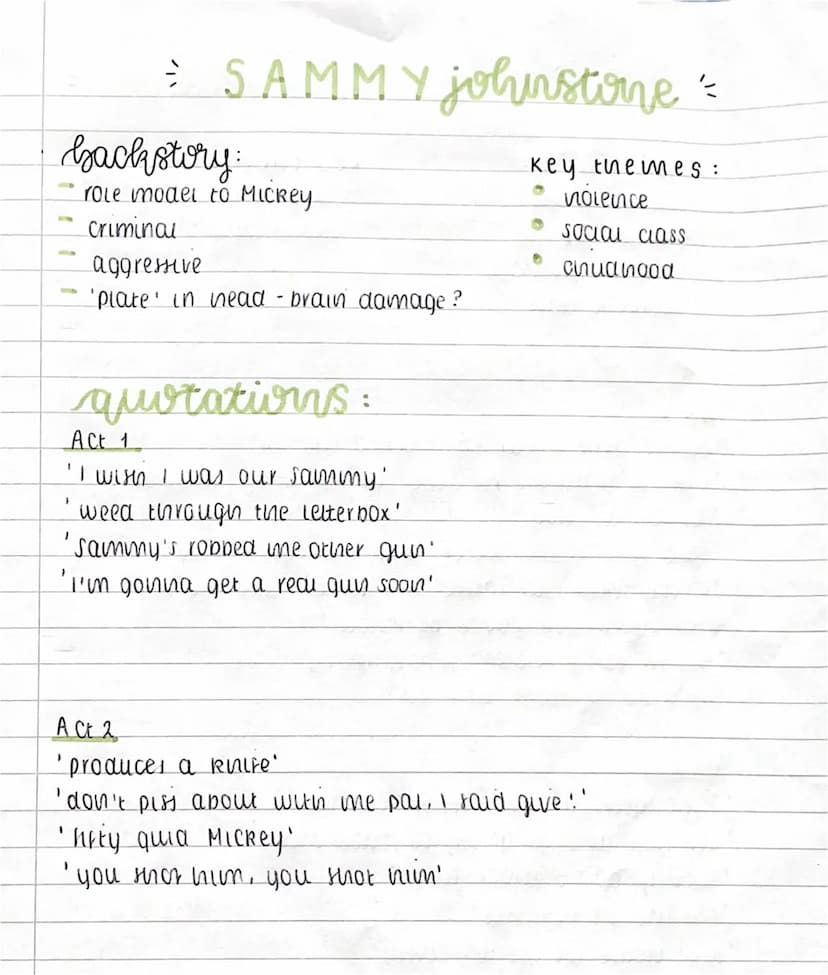 SAMMY johnstone
backstory:
- role model to Mickey
- criminal
- aggressive
- 'plate' in head - brain damage?
Key themes:
• violence
• social class
• childhood
quotations:
Act 1
'I wish I was our Sammy'
'weed through the letterbox'
'Sammy's robbed me other gun'
'I'm gonna get a real gun soon'
Act 2
'produces a knife'
'don't piss about with me pal, I said give!'
'fifty quid Mickey'
'you shot him, you shot him'